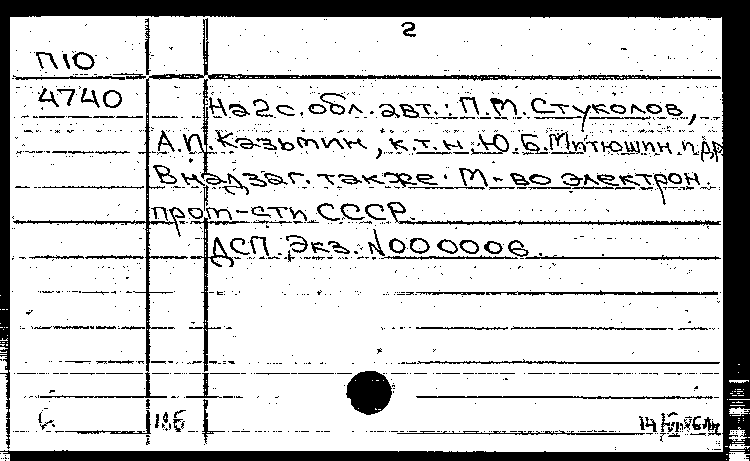 2
П10
4740
На 2 с. обл. авт.: П.М. Стуколов,
А.П. Казьмин, к.т.н. Ю.Б. Митюшин и др.
В надзаг. также: М-во электрон.
пром-сти СССР.
ДСП. Экз. N000006.
186
14